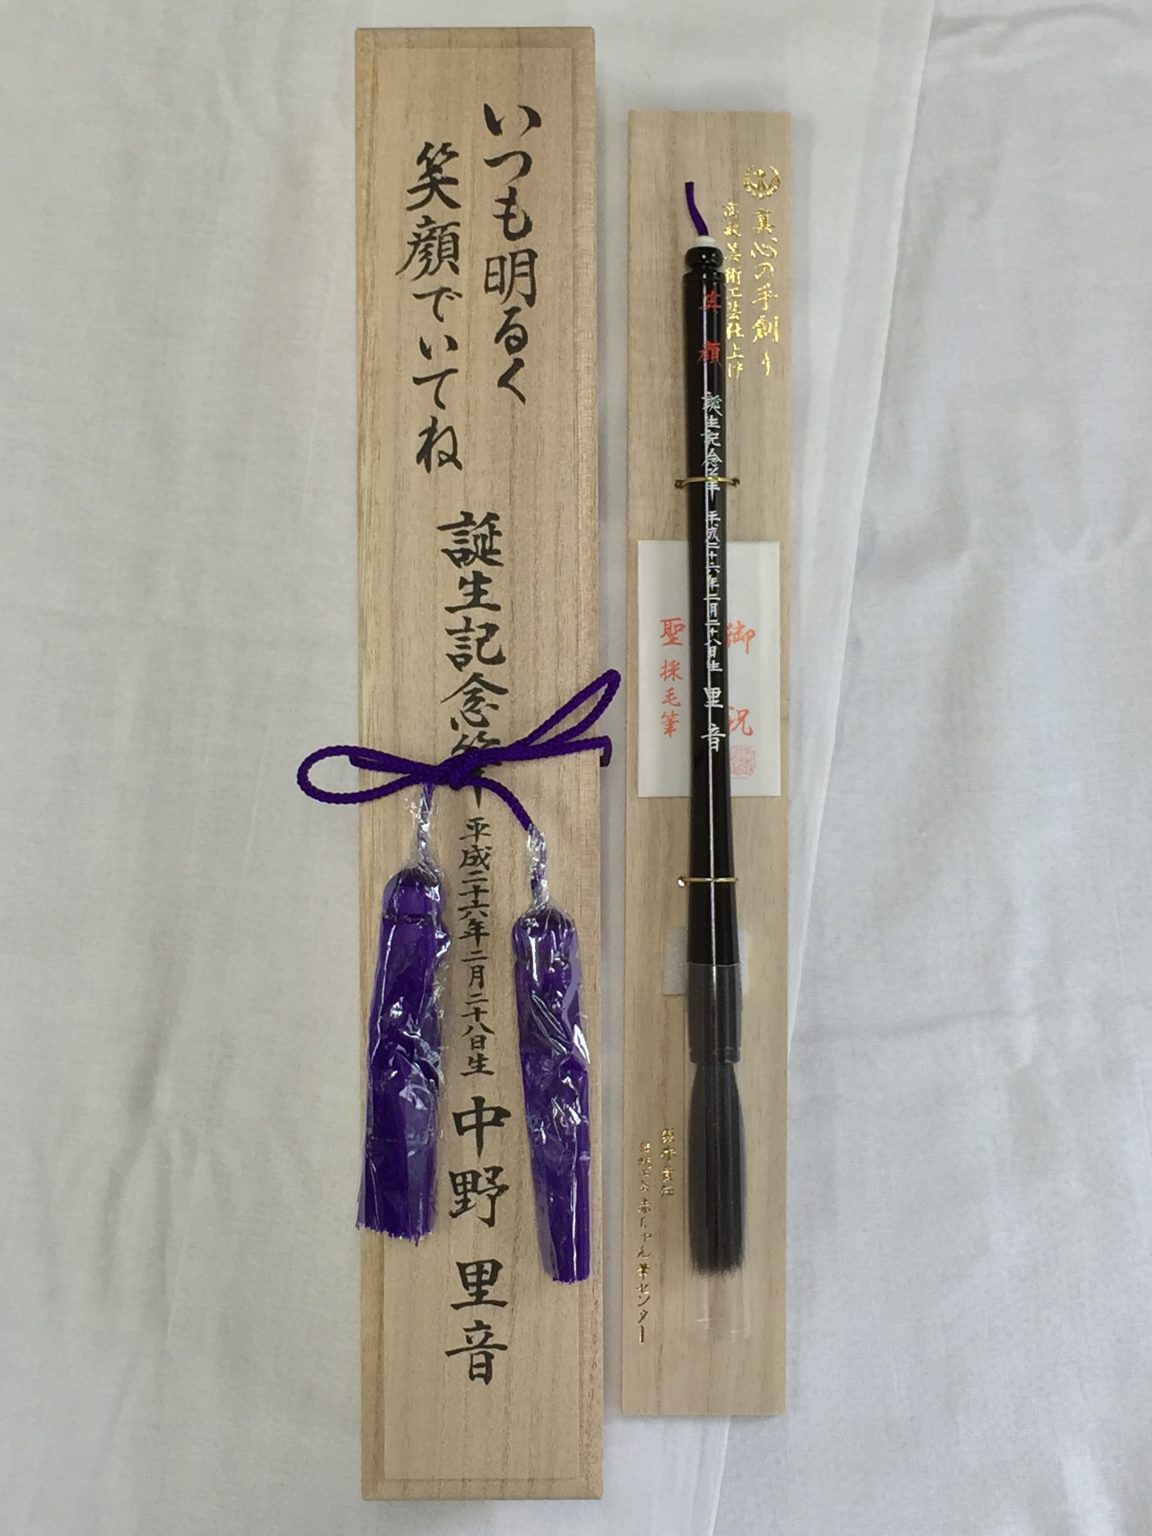 いつも明るく
笑顔でいてね
誕生記念筆 平成二十六年二月二十八日生 中野 里音
真心の手創り
芸術工芸仕上作
顔 誕生記念筆 平成二十六年二月二十八日生 里音
御祝
聖採毛筆
赤ちゃん筆センター